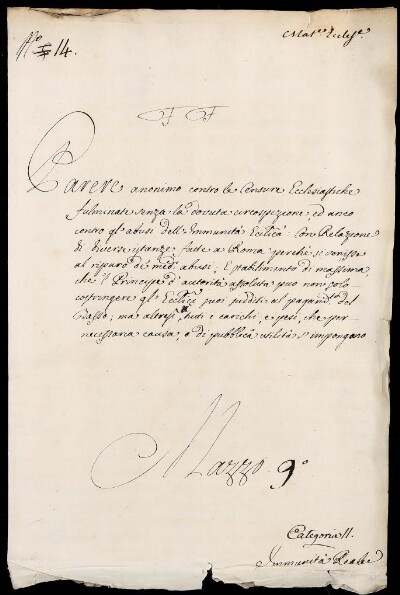 N.o 14.
Mat.e Eccles.e
F F
Parere anonimo contro le Censure Ecclesiastiche
fulminate senza la dovuta circospezione, ed anco
contro gl'abusi dell'Immunità Ecclc̃a Con Relazione
di diverse istanze fatte a Roma perchè si venisse
al riparo de' med.mi abusi, e stabilimento di massima,
che il Principe d'autorità assoluta può non solo
costringere gl'Ecclc̃i suoi sudditi al pagam.to del
Tasso; ma altresì a tutti i carichi e pesi, che per
necessaria causa, o di pubblica utilità s'impongono
Mazzo 9.o
Categoria 11.
Immunità Reale